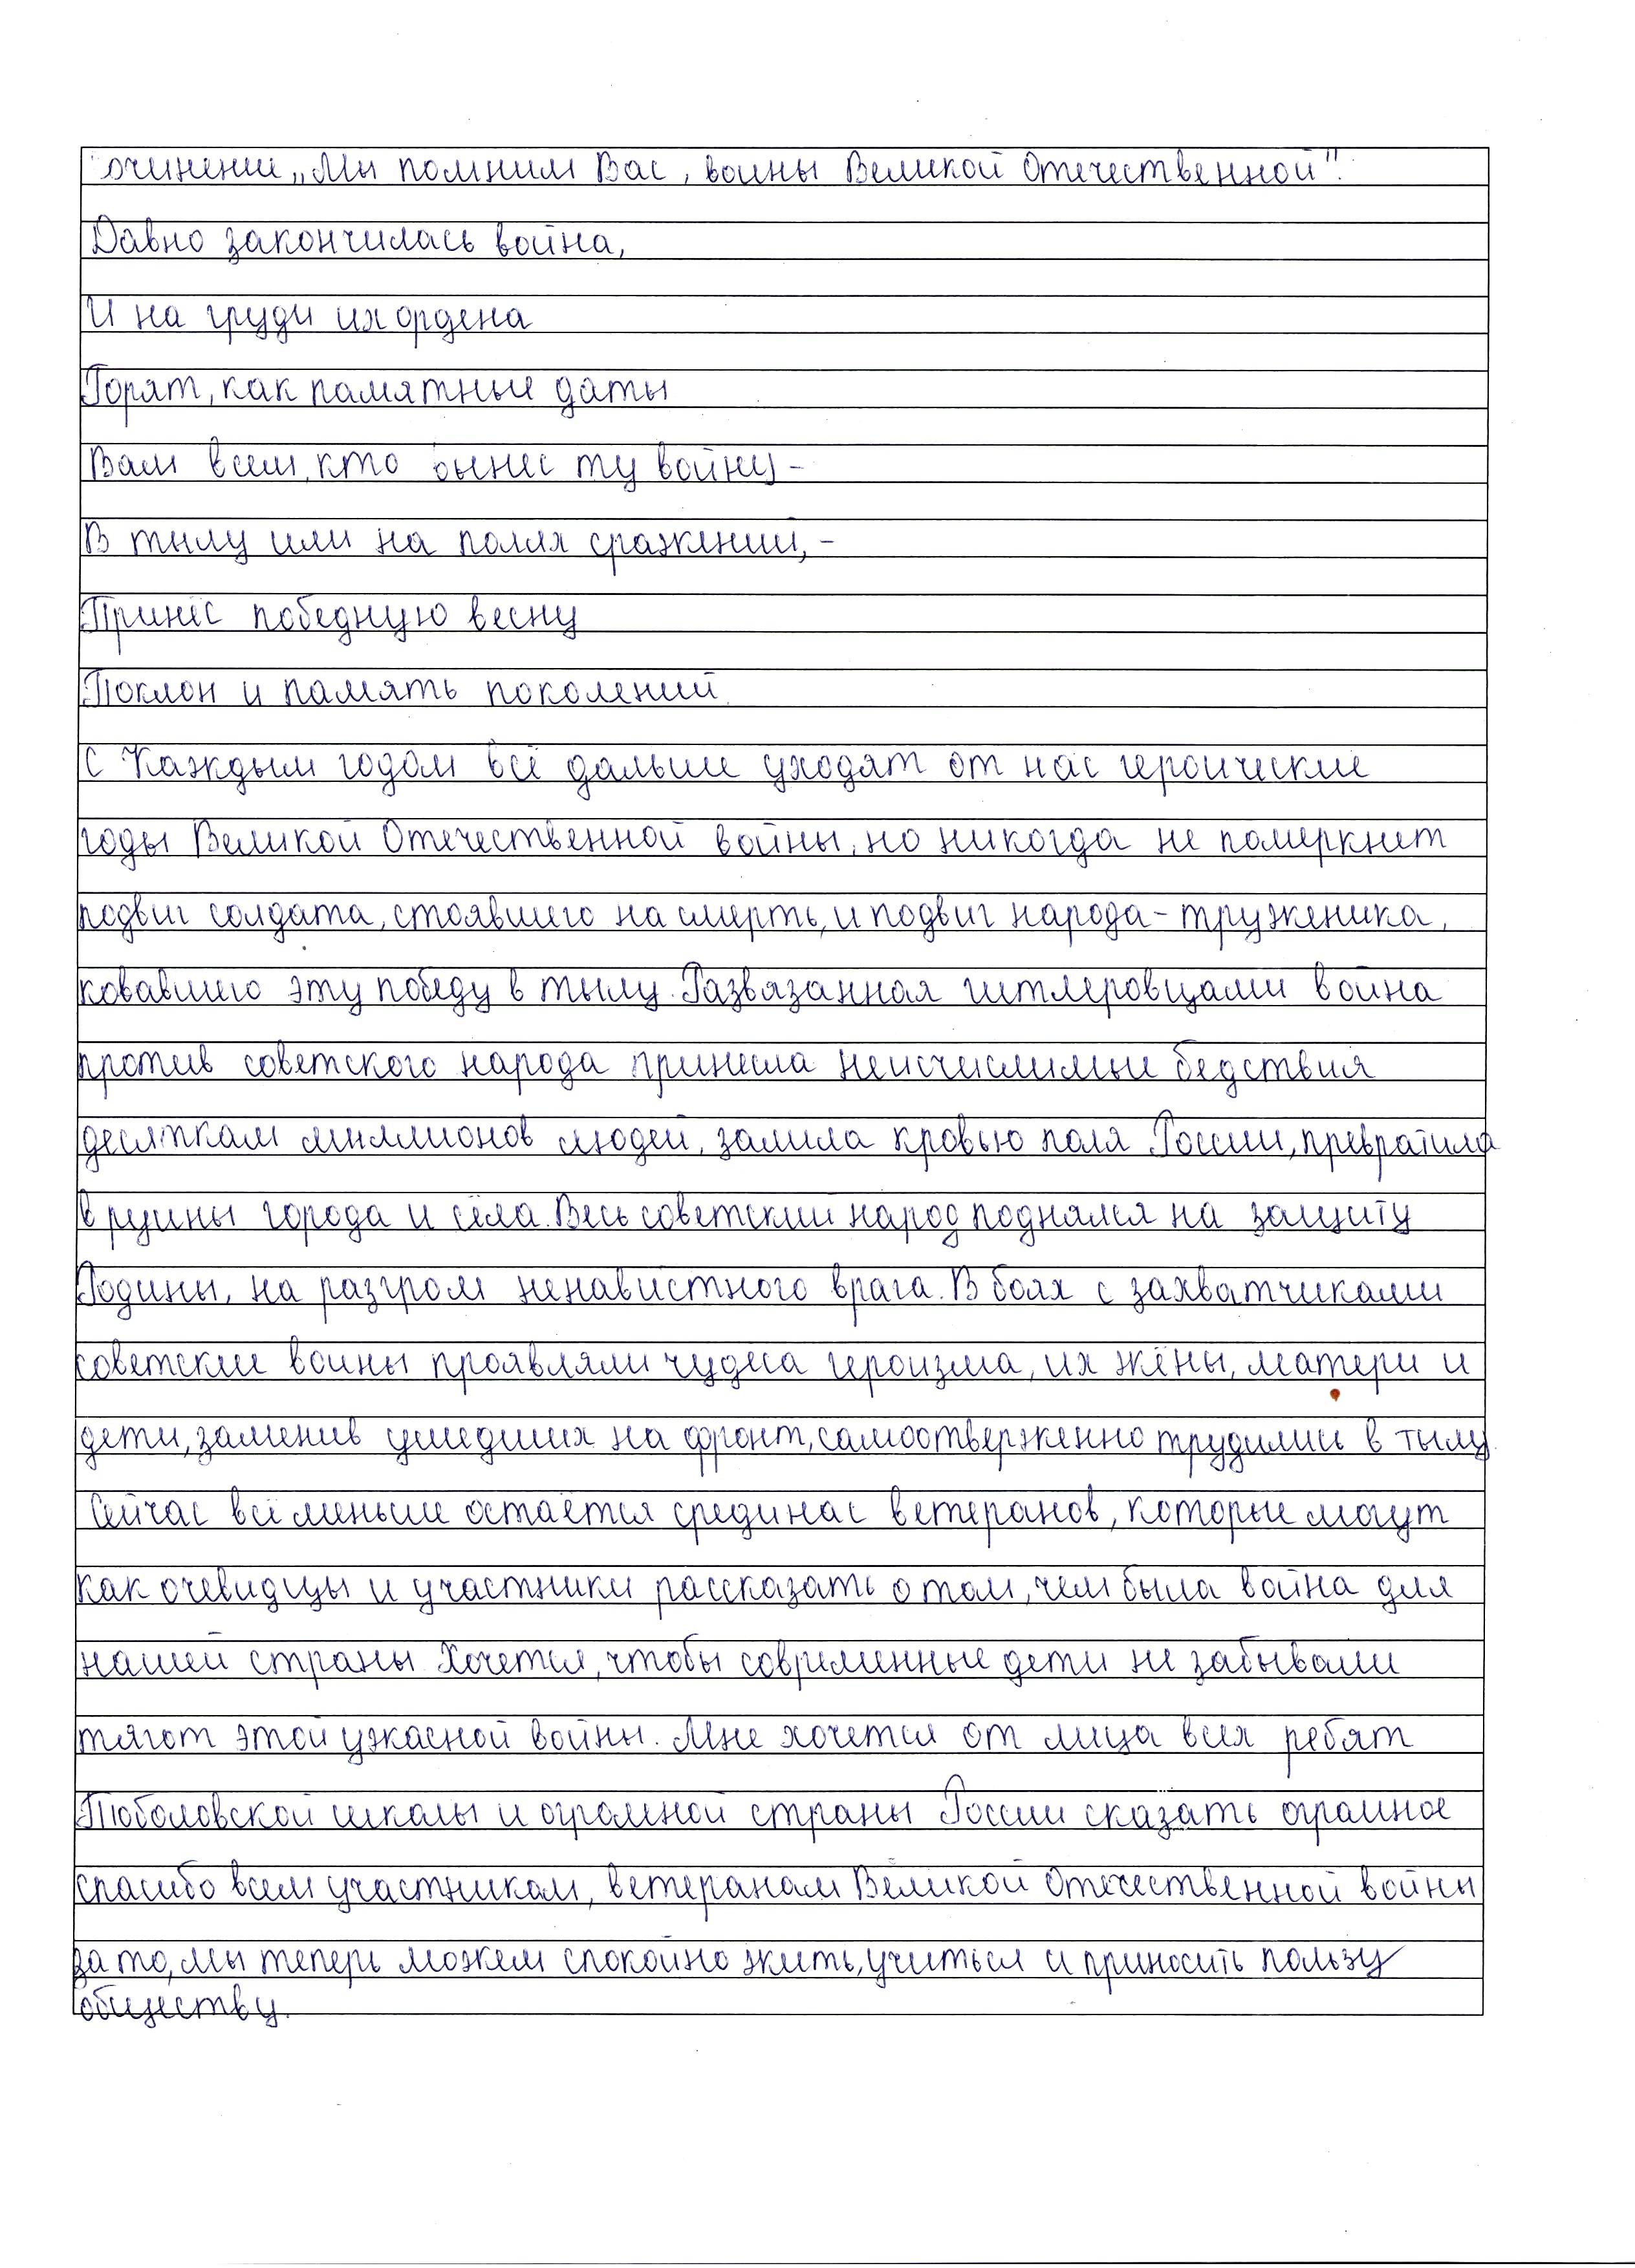 Сочинение „Мы помним Вас, воины Великой Отечественной".
Давно закончилась война,
И на груди их ордена
Горят, как памятные даты
Вам всем, кто вынес ту войну -
В тылу или на полях сражений, -
Принёс победную весну
Поклон и память поколений
С Каждым годом всё дальше уходят от нас героические
годы Великой Отечественной войны, но никогда не померкнет
подвиг солдата, стоявшего на смерть, и подвиг народа-труженика,
ковавшего эту победу в тылу. Развязанная гитлеровцами война
против советского народа принесла неисчислимые бедствия
десяткам миллионов людей, залила кровью поля России, превратила
в руины города и сёла. Весь советский народ поднялся на защиту
Родины, на разгром ненавистного врага. В боях с захватчиками
советские воины проявляли чудеса героизма, их жёны, матери и
дети, заменив ушедших на фронт, самоотверженно трудились в тылу
Сейчас всё меньше остаётся среди нас ветеранов, которые могут
как очевидцы и участники рассказать о том, чем была война для
нашей страны Хочется, чтобы современные дети не забывали
тягот этой ужасной войны. Мне хочется от лица всех ребят
Тоболовской школы и огромной страны России сказать огромное
спасибо всем участникам, ветеранам Великой Отечественной войны
за то, мы теперь можем спокойно жить, учиться и приносить пользу
обществу.